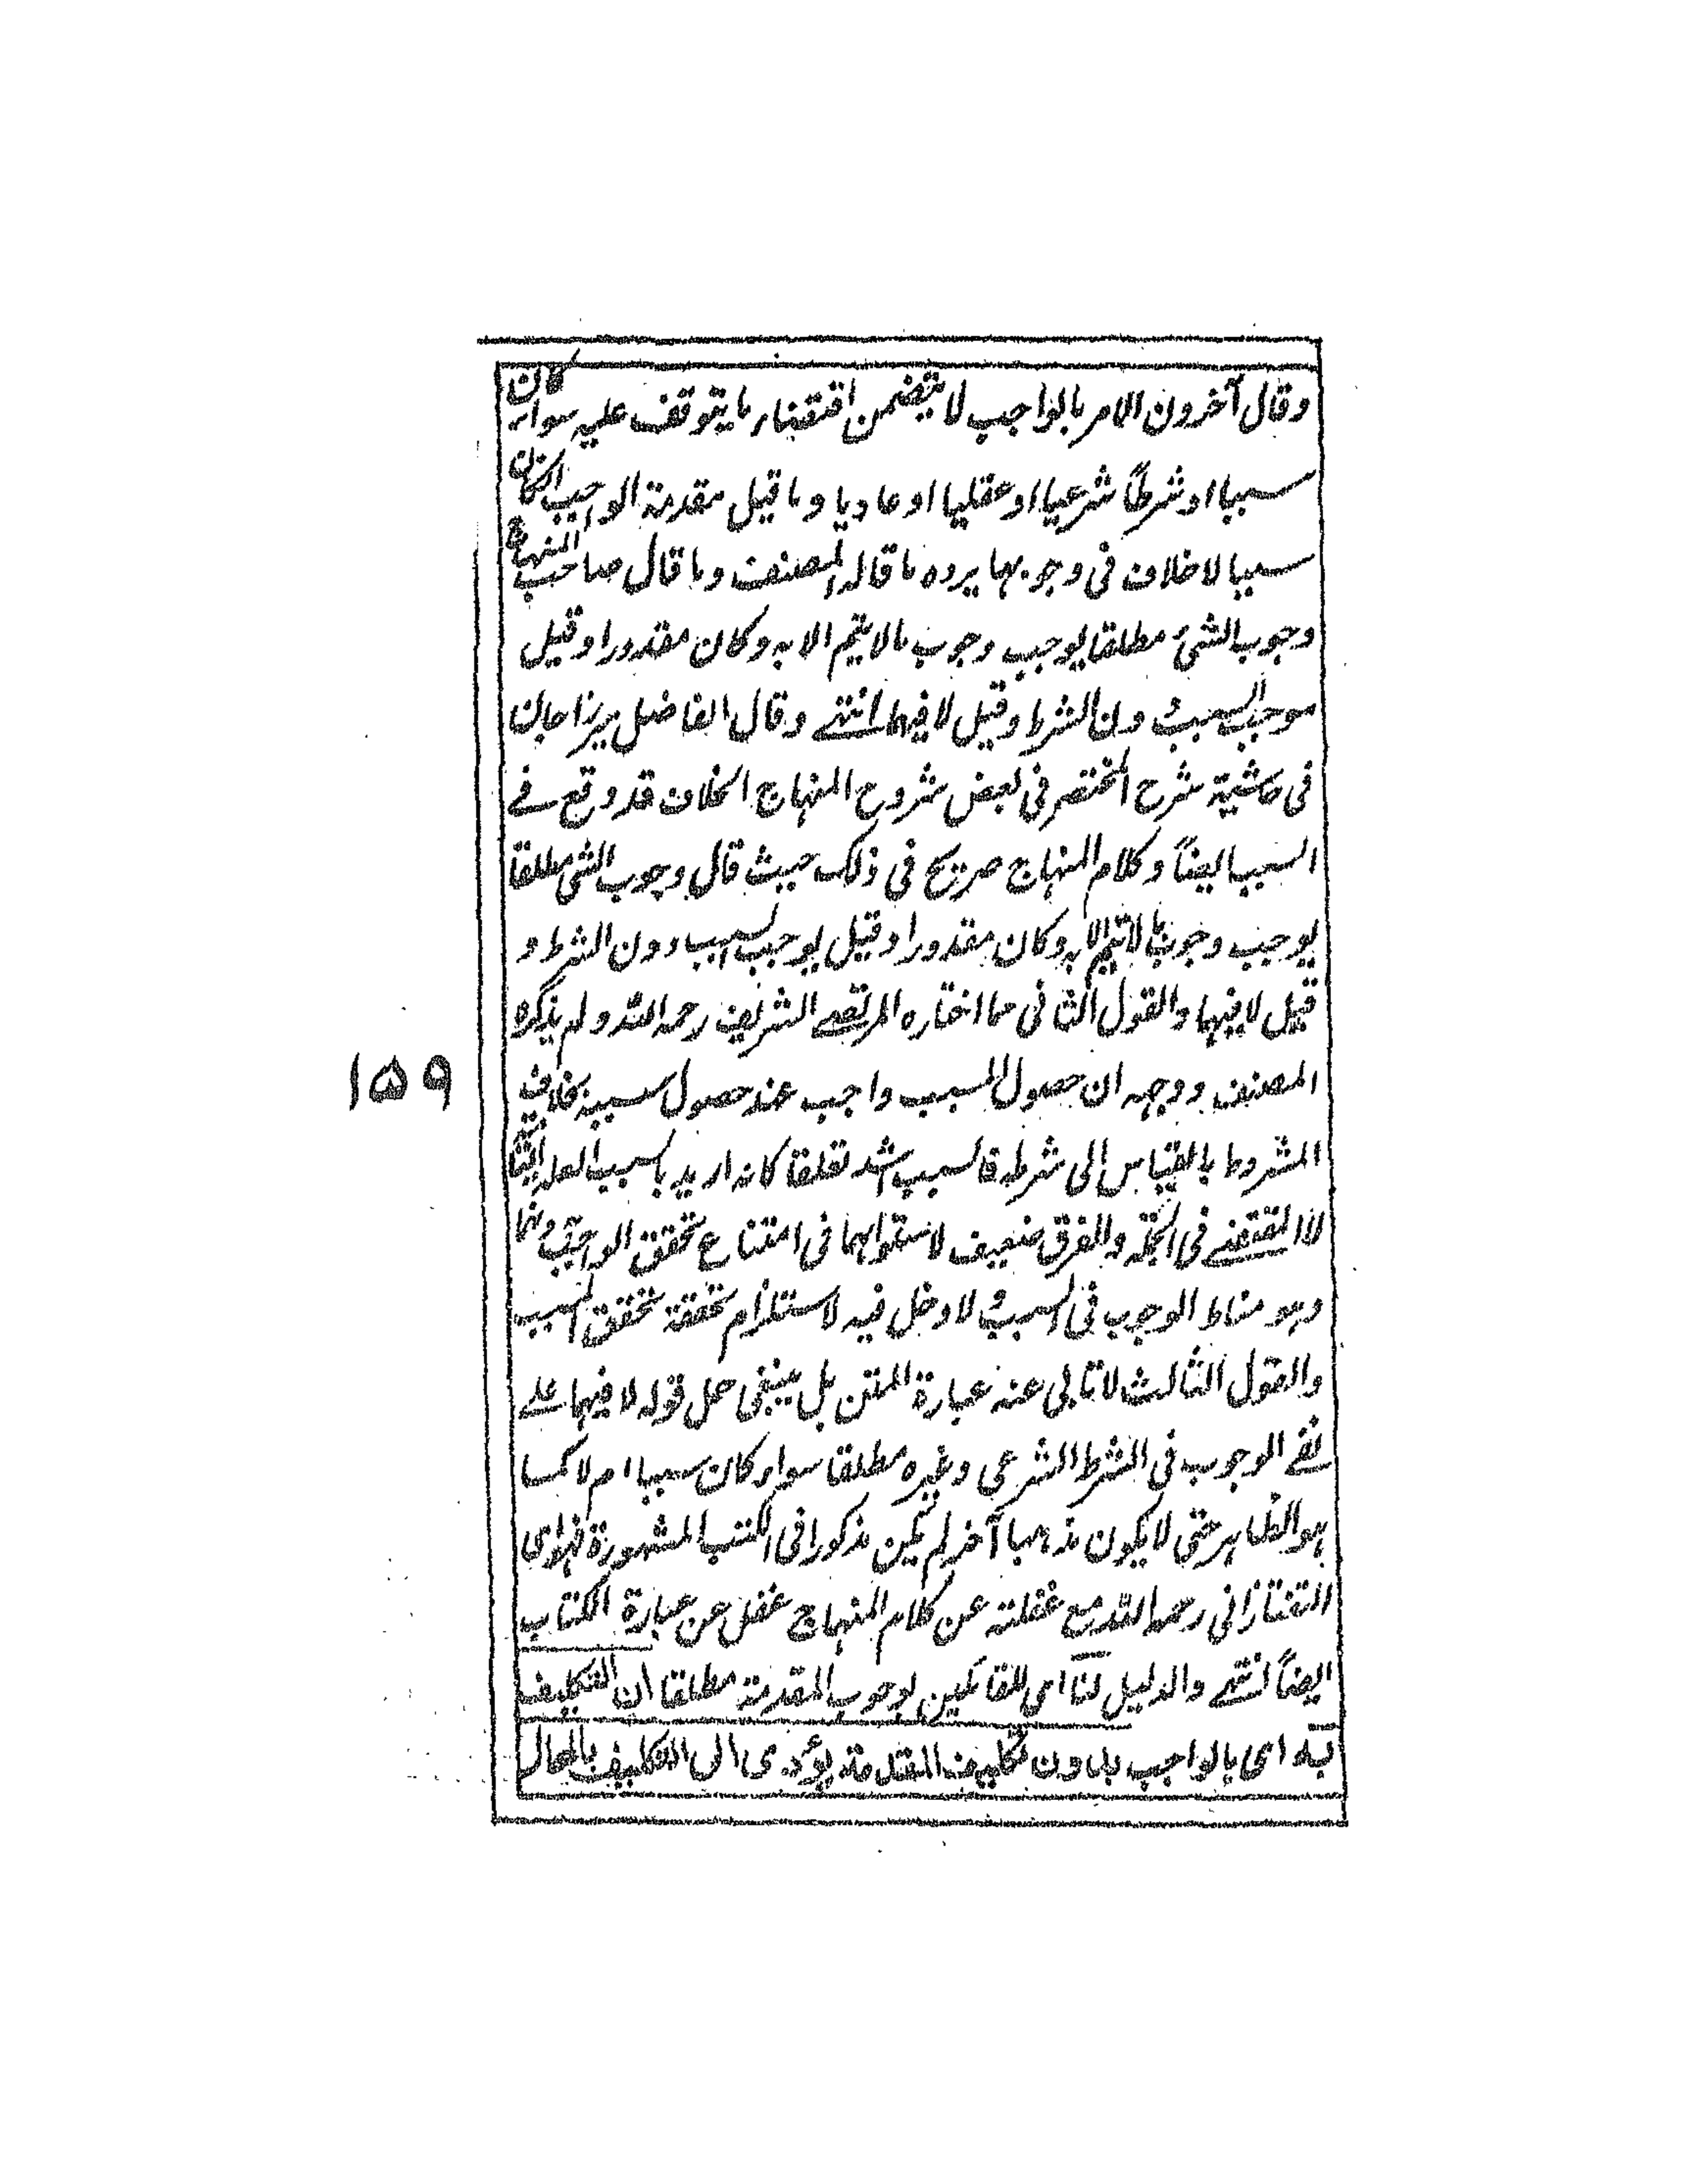 وقال آخرون الامر بالواجب لا يتضمن اقتضاء ما يتوقف عليه سواء كان
سببا او شرطاً شرعيا او عقليا او عاديا وما قيل مقدمة الواجب ان كان
سببا لا خلاف في وجوبها يرده ما قاله المصنف وما قال صاحب المنهاج
وجوب الشئ مطلقا يوجب وجوب ما لا يتم الا به وكان مقدورا وقيل
موجب السبب دون الشرط وقيل لا فيهما انتهے وقال الفاضل ميرزا جان
في حاشية شرح المختصر في بعض شروح المنهاج الخلاف قد وقع فے
السبب ايضاً وكلام المنهاج صريح في ذلك حيث قال وجوب الشئ مطلقا
يوجب وجوب ما لا يتم الا به وكان مقدورا وقيل يوجب السبب دون الشرط و
قيل لا فيهما والقول الثاني مما اختاره المرتضے الشريف رحمه الله ولم يذكره
المصنف ووجهه ان حصول المسبب واجب عند حصول سببه بخلاف
المشروط بالقياس الى شرطه فالسبب اشد تعلقا كانه اريد بالسبب العلة التامة
لا المقتضے في الجملة والفرق ضعيف لاستوائهما في امتناع تحقق الواجب دونهما
وهو مناط الوجوب في السبب لا دخل فيه لاستلزام تحققه تحقق المسبب
والقول الثالث لا تابى عنه عبارة المتن بل ينبغي حمل قوله لا فيهما علے
نفے الوجوب في الشرط الشرعي وغيره مطلقا سواء كان سببا ام لا كما
هو الظاهر حتى لا يكون مذهبا آخر لم يكن مذكورا في الكتب المشهورة
التفتازاني رحمه الله مع غفلته عن كلام المنهاج غفل عن عبارة الكتاب
ايضاً انتهے والدليل لنا اى للقائلين بوجوب المقدمة مطلقا ان التكليف
به اى بالواجب بدون تكليف المقدمة يؤدى الى التكليف بالمحال
١٥٩